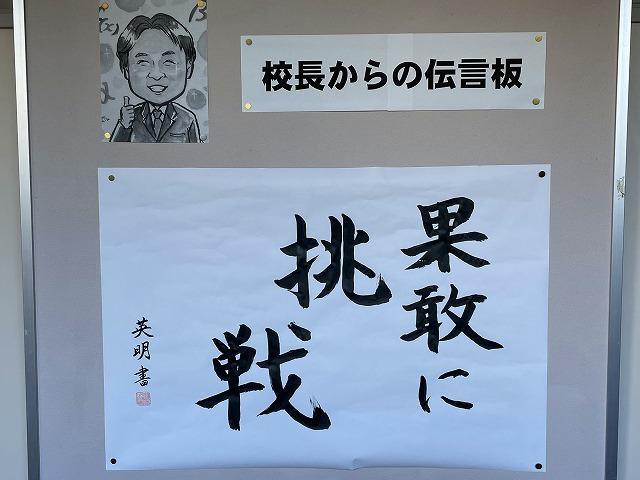 校長からの伝言板
果敢に
挑
戦
英明書